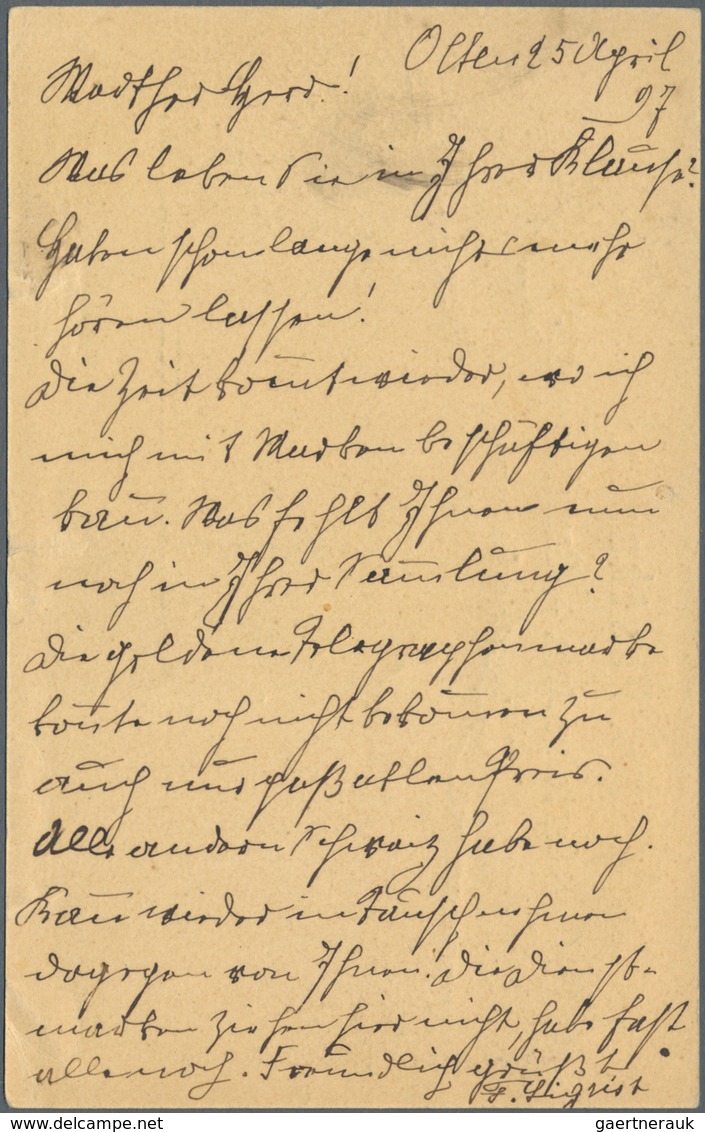 Olten 25 April
97
Werther Herr!
Was leben Sie in Ihrer Klause?
Haben schon lange nichts mehr
hören lassen!
Die Zeit kom̅t wieder, wo ich
mich mit Marken beschäftigen
kan̅. Was fehlt Ihnen nun
noch in Ihrer Sam̅lung?
Die goldene Telegraphenmarke
kon̅te noch nicht bekom̅en zu
auch nur Preis.
Alle andern Schweiz habe noch.
Kan̅ wieder in Tausch nehmen
dagegen von Ihnen. Die Dienst-
marken ziehen hier nicht, habe fast
alle noch. Freundlich grüßt
F. Sigrist
gaertnerauk
© www.delcampe.net/gaertnerauk